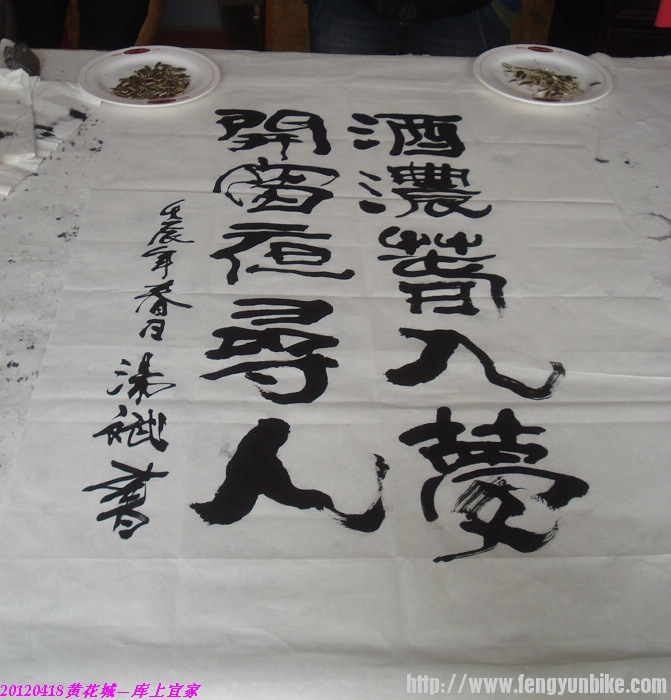 酒濃萅入夢
開窗夜尋人
壬辰年春月湯斌書
20120418黄花城—库上宜家
http://www.fengyunbike.com